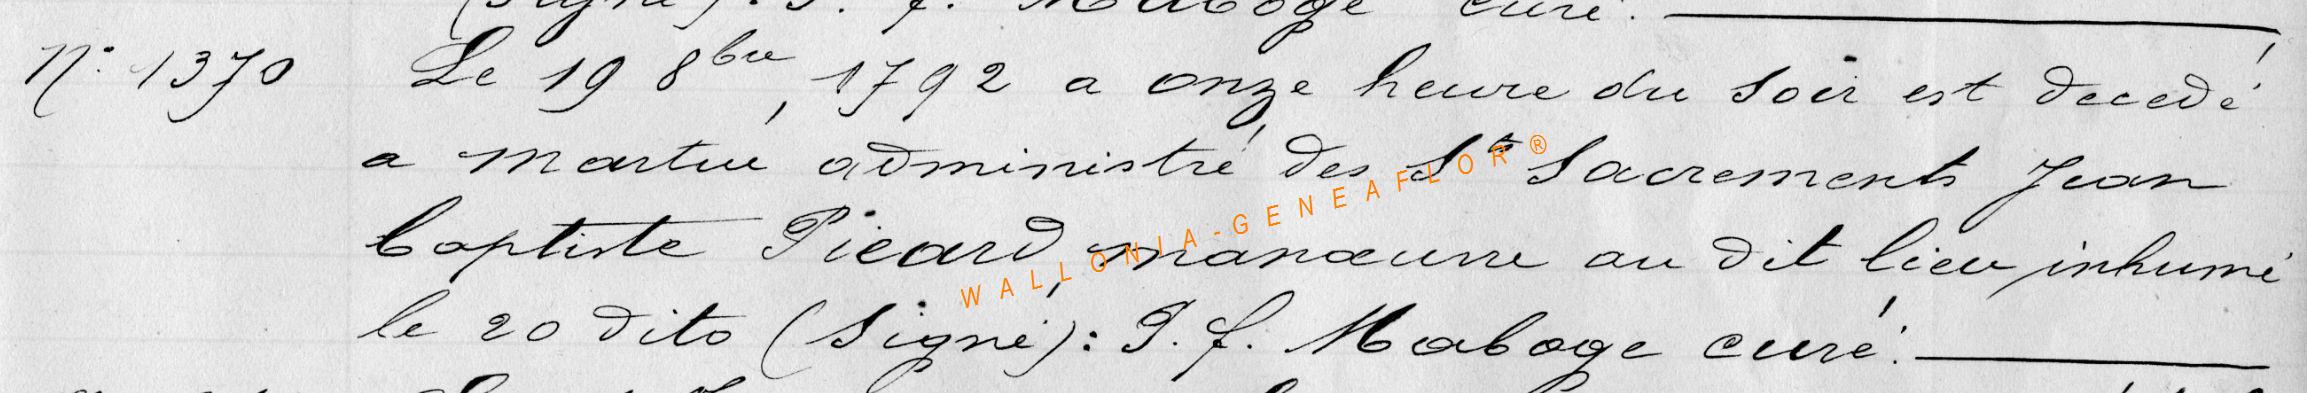 (Signé): J. f. Maboge curé.
N: 1370 Le 19 8bre, 1792 a onze heure du soir est decedé
a martué administré des Sts Sacrements Jean
baptiste Picard, manœuvre au dit lieu, inhumé
le 20 dito (Signé): J. f. Maboge curé.
WALLONIA-GENEAFLOR®